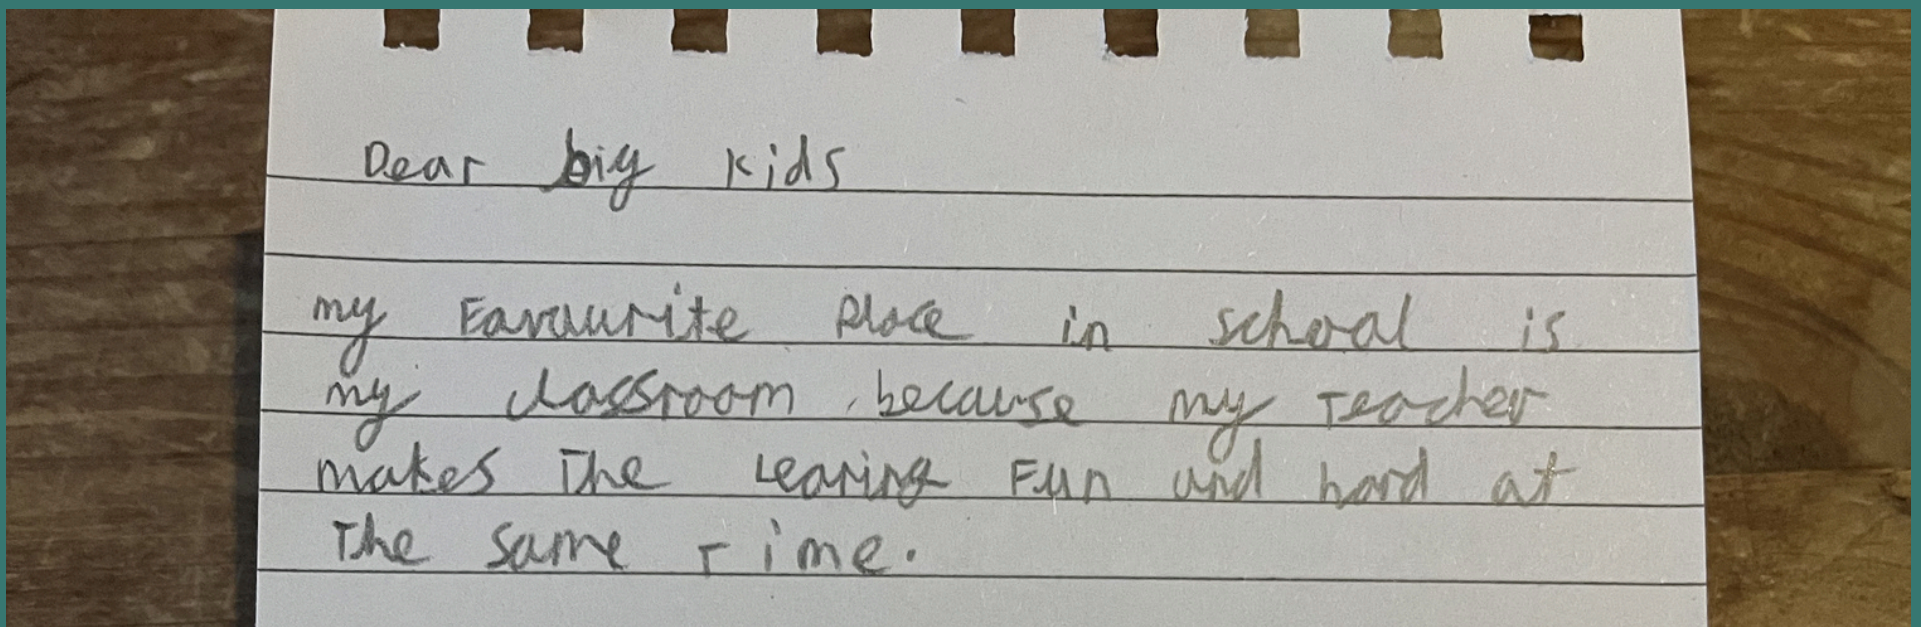 Dear big kids
my Favourite place in school is
my classroom because my Teacher
makes The Learing Fun and hard at
The same Time.